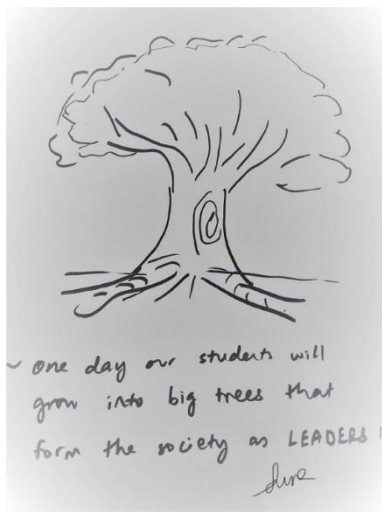 ~ one day our students will
grow into big trees that
form the society as LEADERS